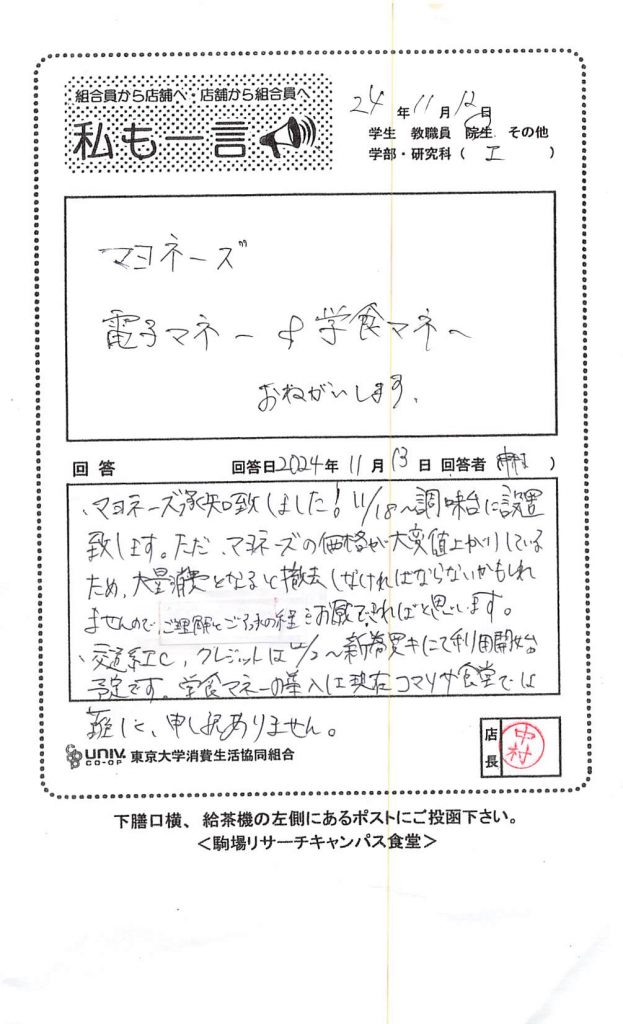 組合員から店舗へ・店舗から組合員へ
私も一言
24年11月12日
学生 教職員 院生 その他
学部・研究科( 工 )
マヨネーズ
電子マネー & 学食マネー
おねがいします.
回答 回答日2024年11月13日 回答者(中村)
・マヨネーズ承知致しました!11/18~調味台に設置
致します。ただ、マヨネーズの価格が大変値上がりしている
ため、大量消費となると撤去しなければならないかもしれ
ませんので、ご理解とご了承の程をお願いできればと思います。
・交通系IC,クレジットは~新券買キにて利用開始
予定です。学食マネーの導入は現在コマリサ食堂では
難しく、申し訳ありません。
UNIV. CO-OP 東京大学消費生活協同組合
店長 中村
下膳口横、給茶機の左側にあるポストにご投函下さい。
<駒場リサーチキャンパス食堂>